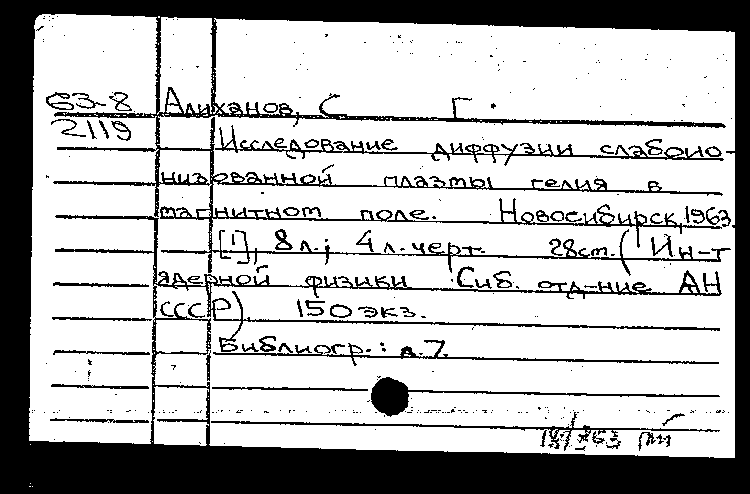 63-8 Алиханов, С Г.
2119 Исследование диффузии слабоио-
низованной плазмы гелия в
магнитном поле. Новосибирск, 1963.
[1], 8 л.; 4 л. черт. 28 см. (Ин-т
ядерной физики Сиб. отд-ние АН
СССР). 150 экз.
Библиогр.: л. 7.